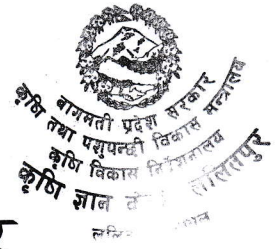 बागमती प्रदेश सरकार
कृषि तथा पशुपन्छी विकास मन्त्रालय
कृषि विकास निर्देशनालय
कृषि ज्ञान ललितपुर